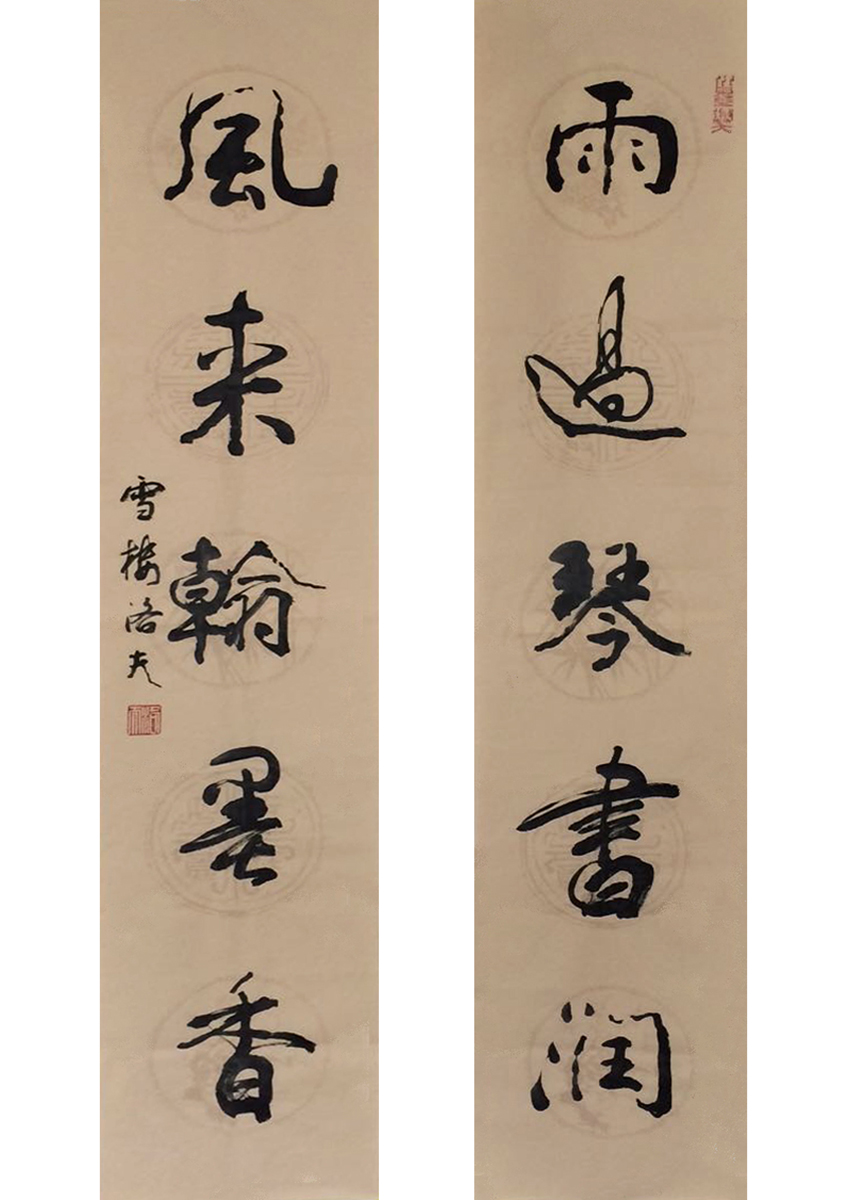 雨過琴書潤
風来翰墨香
雪樓洛夫